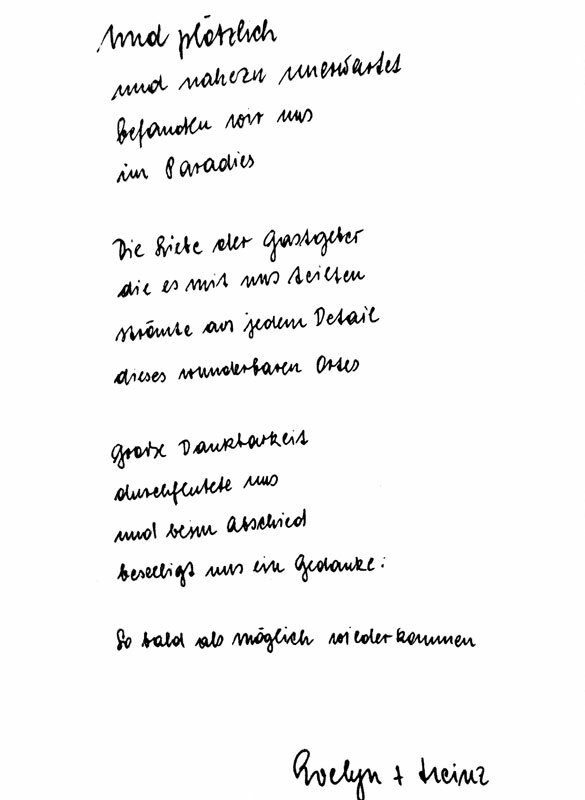 Und plötzlich
und nahezu unerwartet
befanden wir uns
im Paradies
Die Liebe der Gastgeber
die es mit uns teilten
strömte aus jedem Detail
dieses wunderbaren Ortes
Große Dankbarkeit
durchflutete uns
und beim Abschied
beseeligt uns ein Gedanke:
So bald als möglich wiederkommen
Evelyn + Heinz